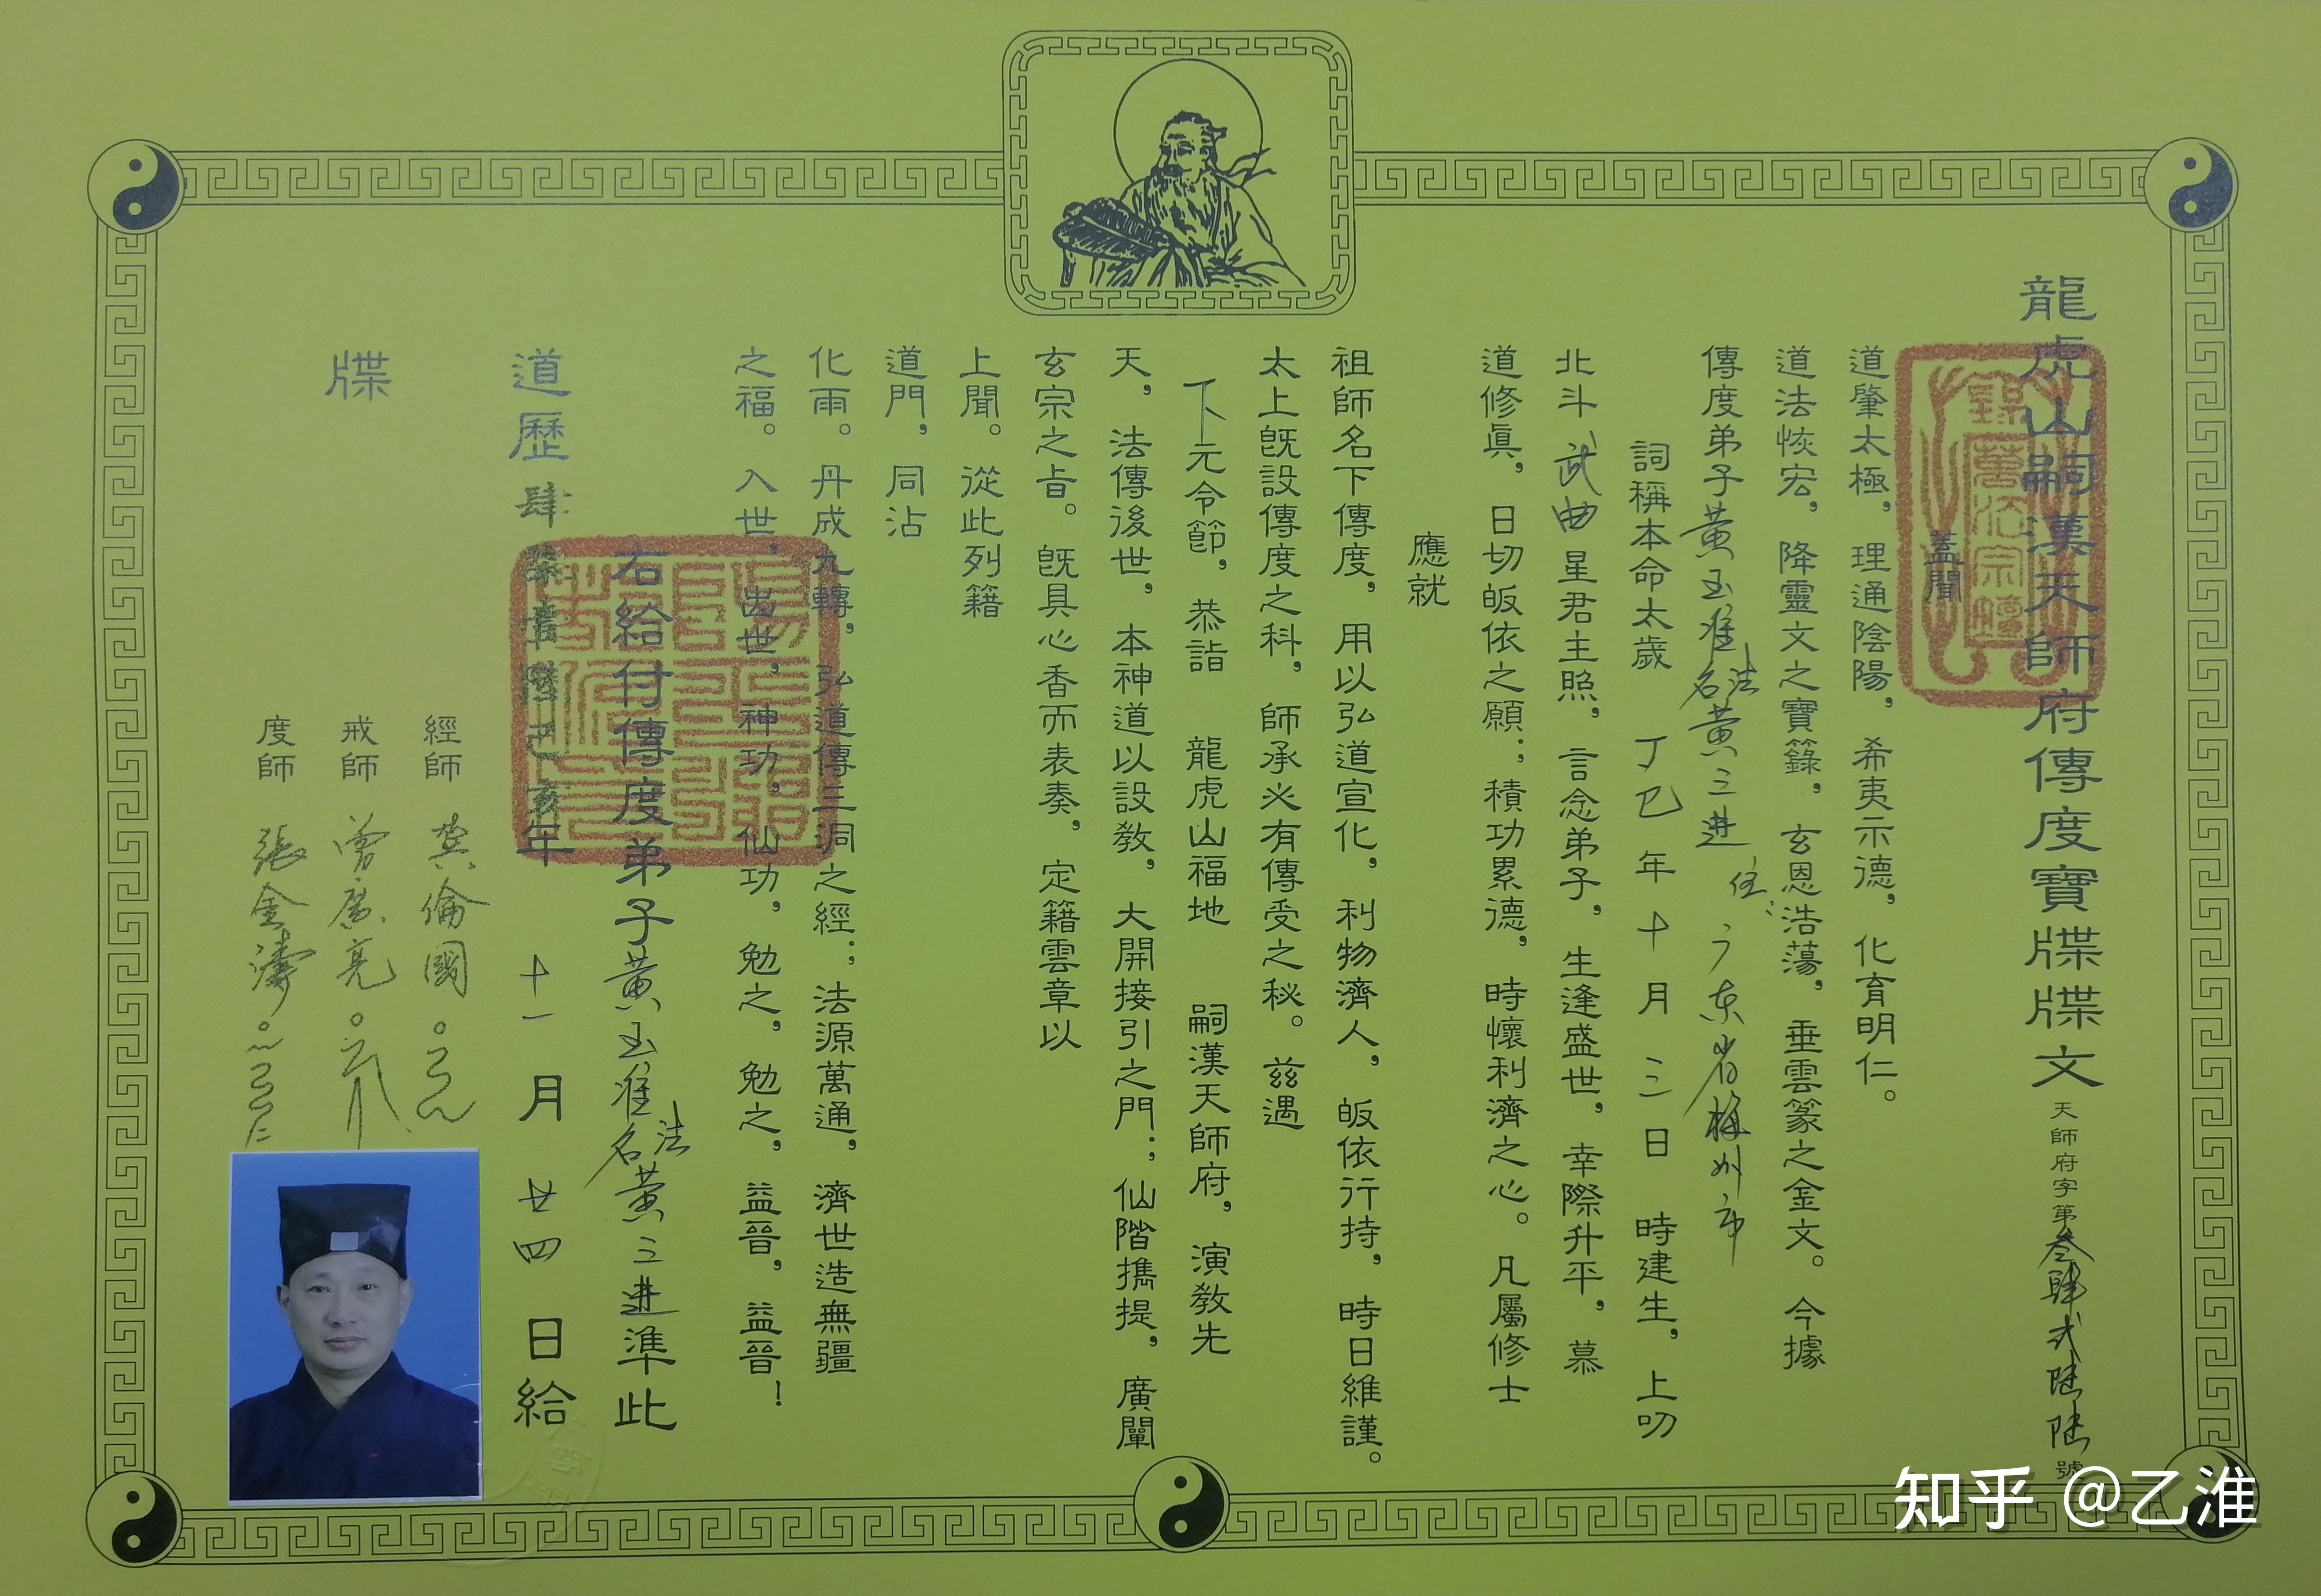 龍虎山嗣漢天師府傳度寶牒牒文
天師府字第叁肆弍陸陸號
蓋聞
道肇太極，理通陰陽，希夷示德，化育明仁。
道法恢宏，降靈文之寶籙，玄恩浩蕩，垂雲篆之金文。今據
傳度弟子黃玉淮法名黃三进 住 广东省梅州市
詞稱本命太歲 丁巳 年 十 月 三 日 時建生，上叨
北斗 武曲 星君主照，言念弟子，生逢盛世，幸際升平，慕
道修眞，日切皈依之願；積功累德，時懷利濟之心。凡屬修士
應就
祖師名下傳度，用以弘道宣化，利物濟人，皈依行持，時日維謹。
太上旣設傳度之科，師承必有傳受之秘。兹遇
下元令節，恭詣 龍虎山福地 嗣漢天師府，演教先
天，法傳後世，本神道以設教，大開接引之門；仙階擕提，廣闡
玄宗之旨。旣具心香而表奏，定籍雲章以
上聞。從此列籍
道門，同沾
化雨。丹成九轉，弘道傳三洞之經；法源萬通，濟世造無疆
之福。入世，出世，神功，仙功，勉之，勉之，益晉，益晉！
右給付傳度弟子黃玉淮法名黃三进準此
道歷肆柒壹陸己亥年 十一 月 廿四 日給
牒
經師 龔倫國
戒師 曾廣亮
度師 張金濤
知乎 @乙淮